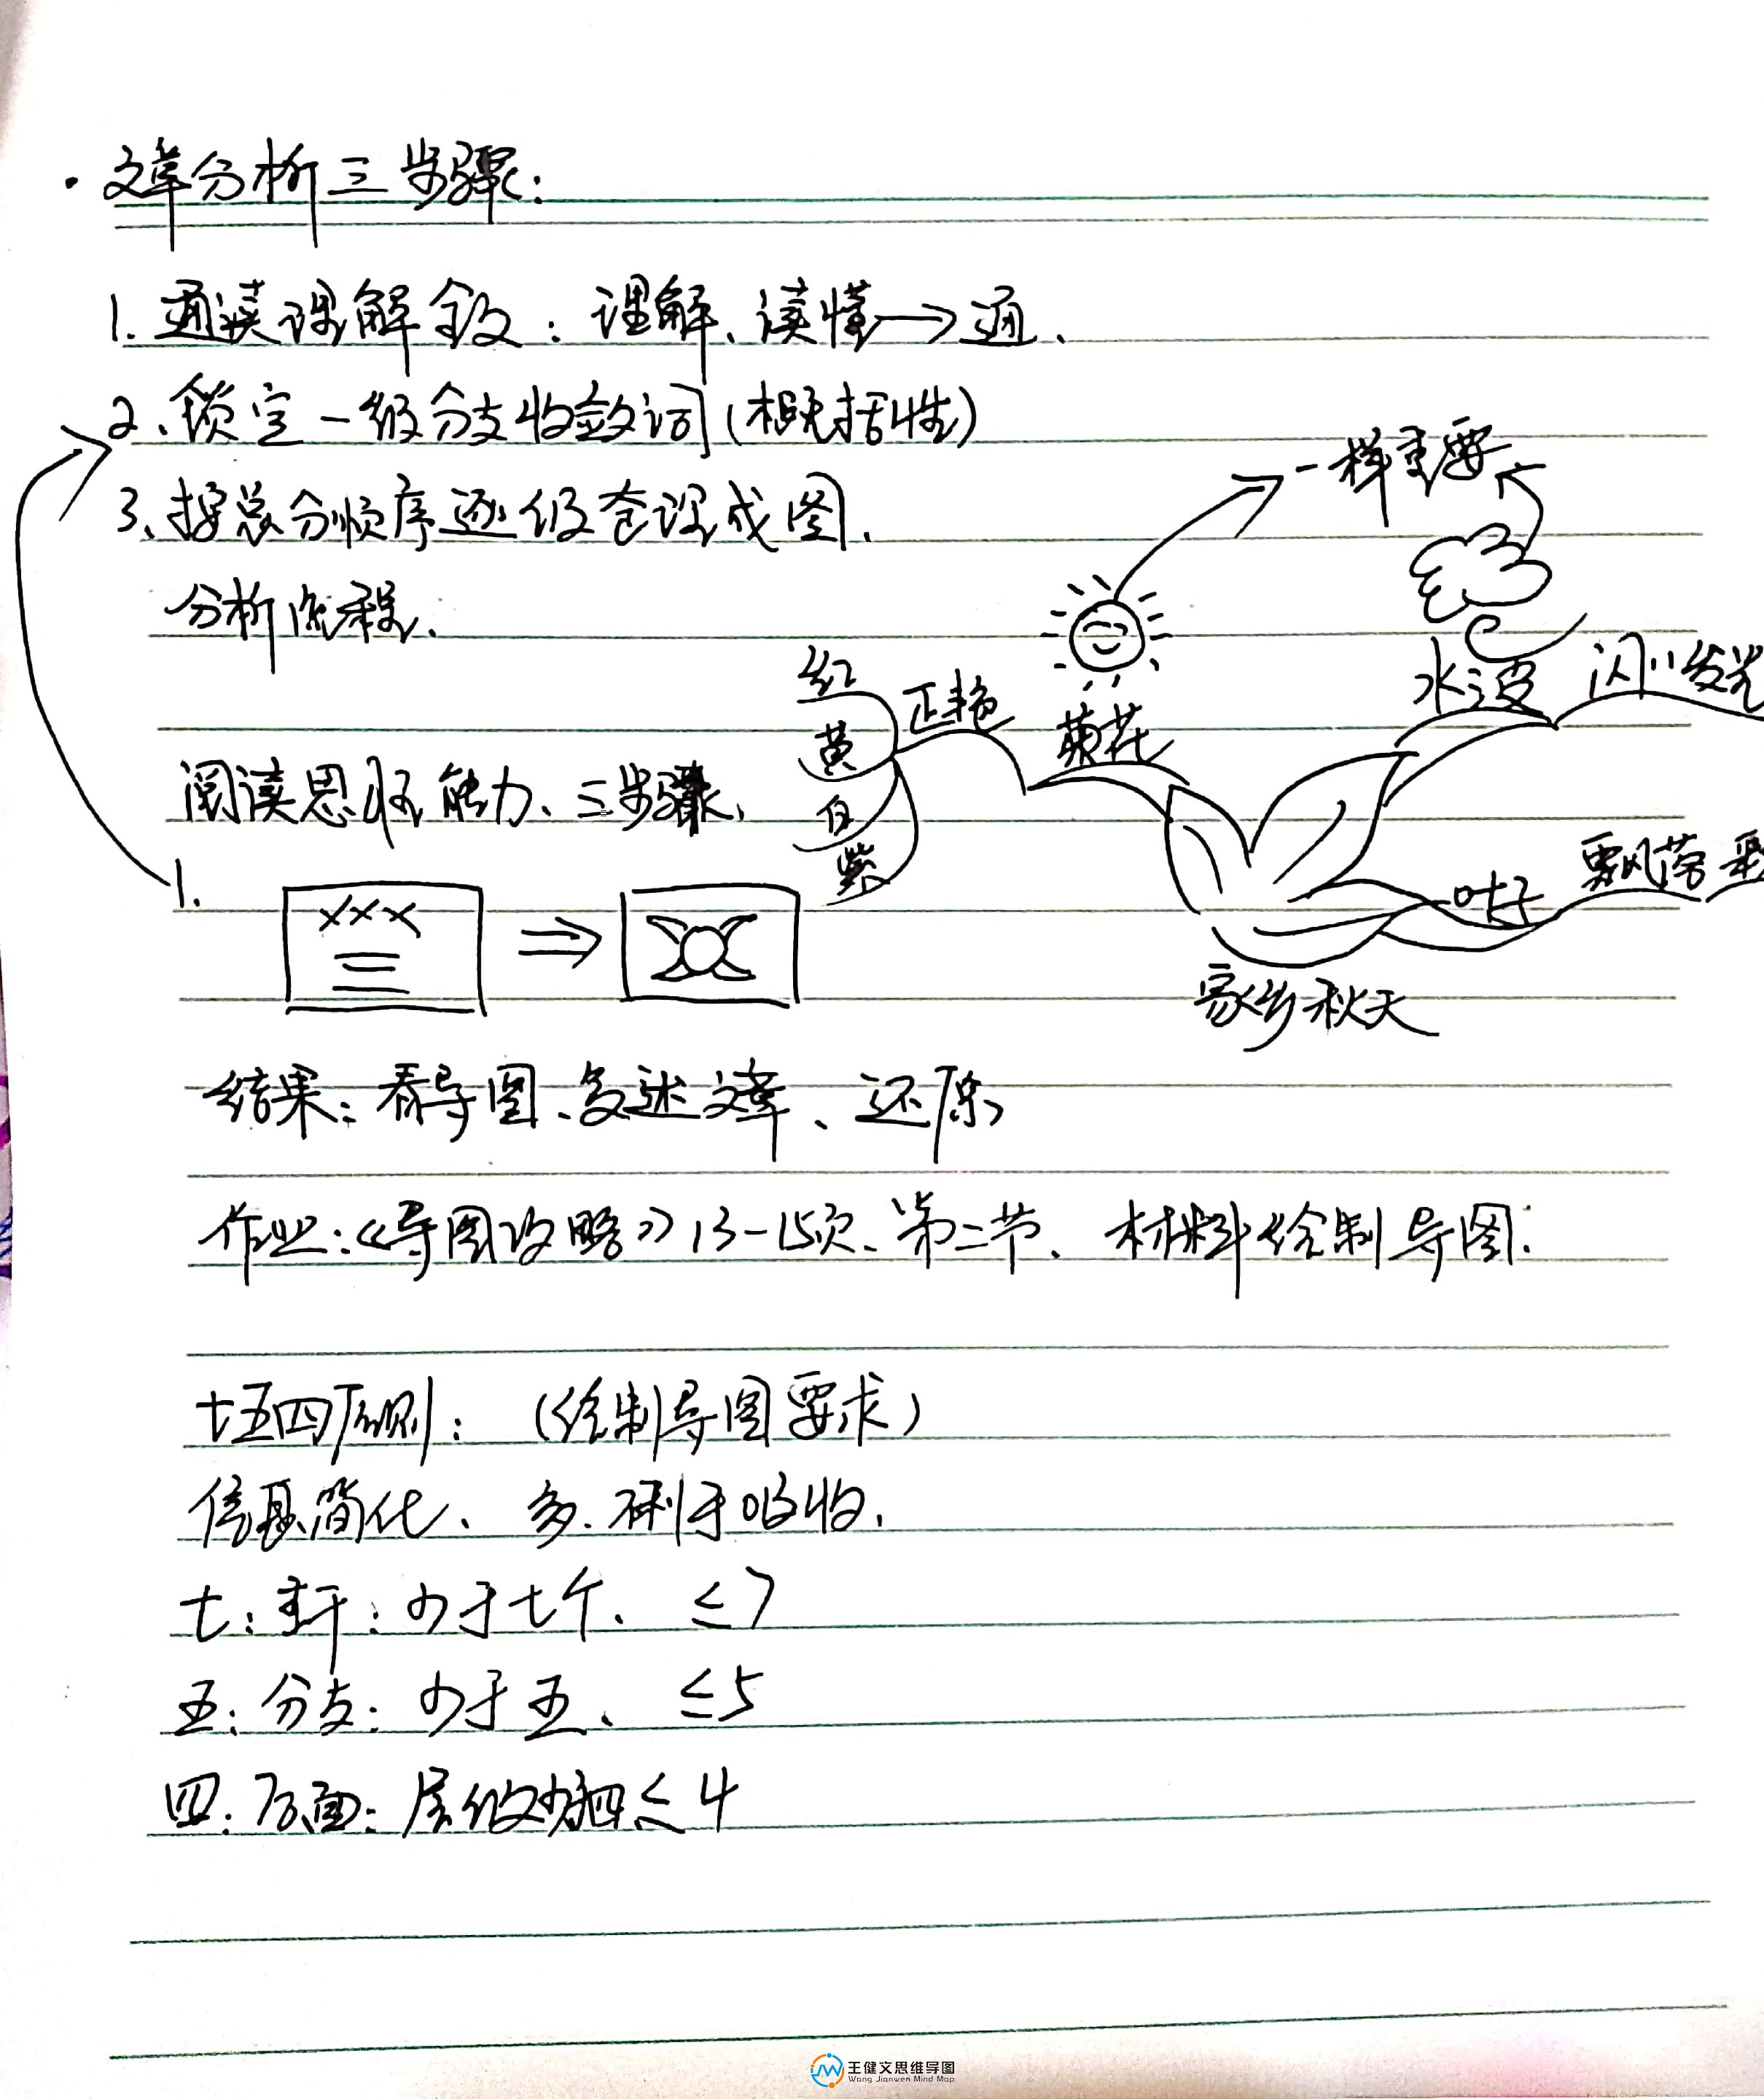 ·文章分析三步骤:
1.通读理解全文:理解、读懂→通、
2、锁定一级分支收敛词(概括性)
3、按总分顺序逐级套设成图.
分析流程、
一样重要
红
黄
白
紫
艳
菊花
水波
闪闪发光
阅读思维能力、三步骤、
叶子
飘带
家乡秋天
1.
xxx
结果:看导图、复述文章、还原
作业:《导图攻略》13-15页、第二节、材料绘制导图.
七五四原则:(绘制导图要求)
信息简化、多.不利于吸收.
七:主干:少于七个、≤7
五:分支:少于五、≤5
四:层面:层级少于四≤4
王健文思维导图
Wang Jianwen Mind Map